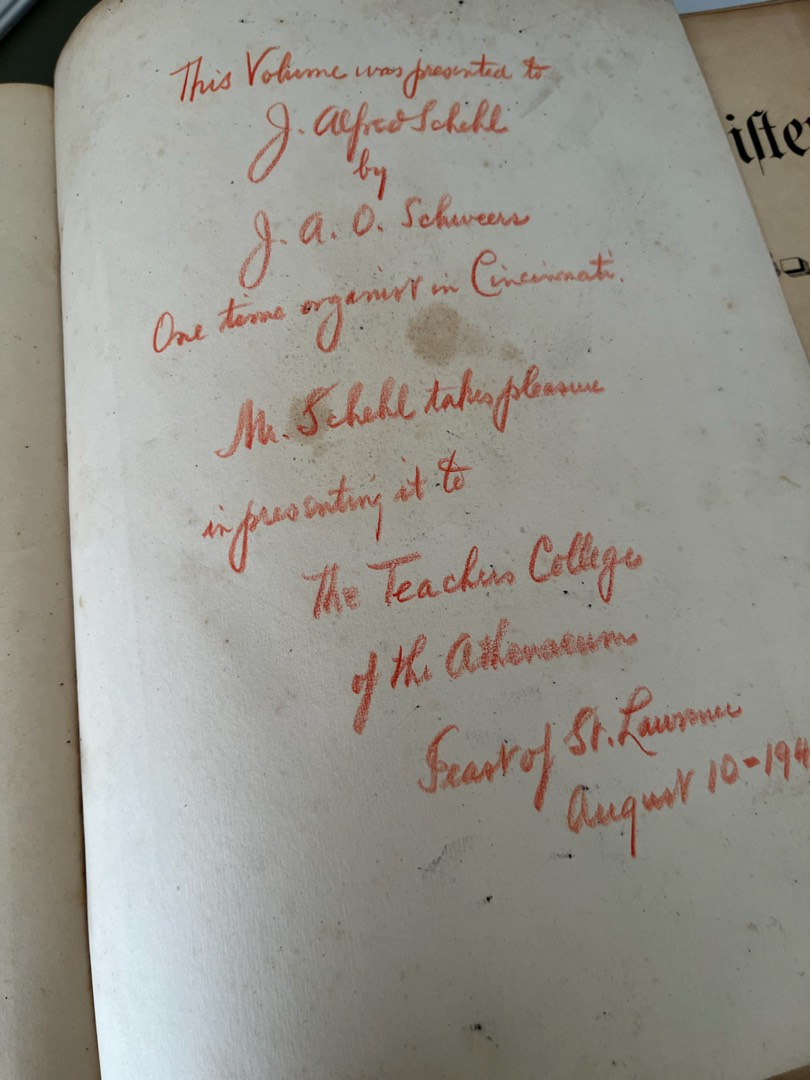 This Volume was presented to
J. Alfred Schehl
by
J. A. O. Schweers
One time organist in Cincinnati.
Mr. Schehl takes pleasure
in presenting it to
The Teachers College
of the Athenaeum
Feast of St. Lawrence
August 10-194
iste